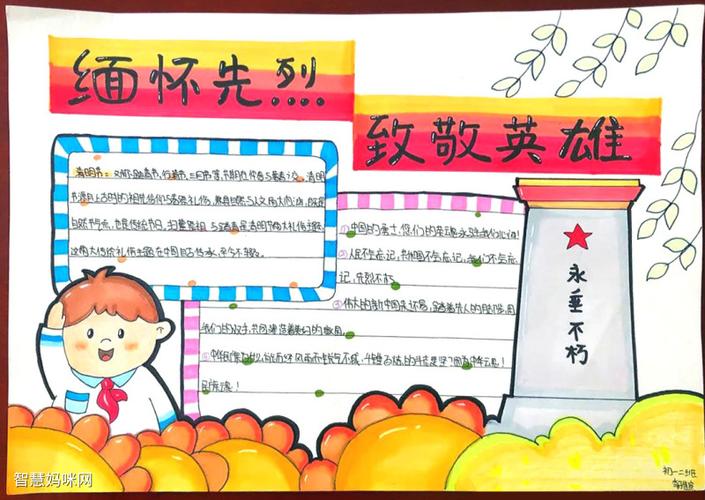 缅怀先烈....
致敬英雄
清明节:又称踏青节、行清节、三月节等,节期在仲春与暮春之交。清明
节源自上古时的祖先信仰与春祭礼俗,兼具自然与人文两大内涵,既是
自然节气点,也是传统节日,扫墓祭祖与踏青是清明节两大礼俗主题,
这两大传统礼俗主题在中国自古传承,至今不辍。
①中国的勇士,您们的英魂永驻我们心间!
②人民不会忘记,共和国不会忘记,我们不会忘
记,先烈不朽
③伟大的新中国来之不易,踏着先人的足迹,用
我们的双手,共同建造美好的家园。
永垂不朽
初一二班
智慧妈咪网